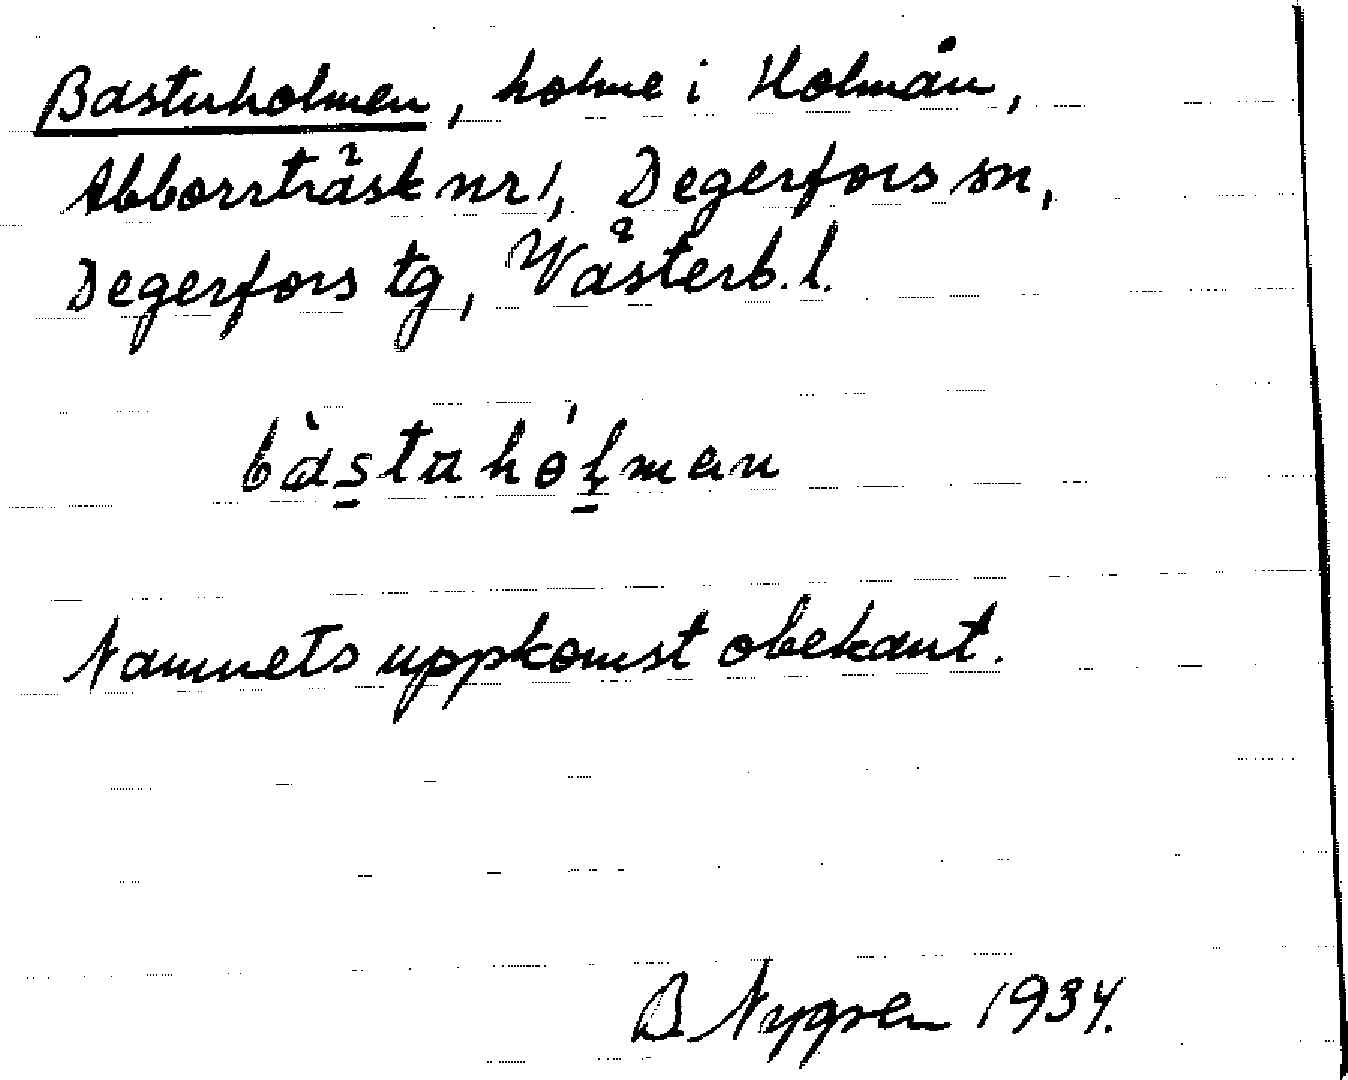 Bastuholmen, holme i Holmån,
Abborrträsk nr 1, Degerfors sn,
Degerfors tg, Västerb. l.
bàstuhólman
Namnets uppkomst obekant.
B Nygren 1934.